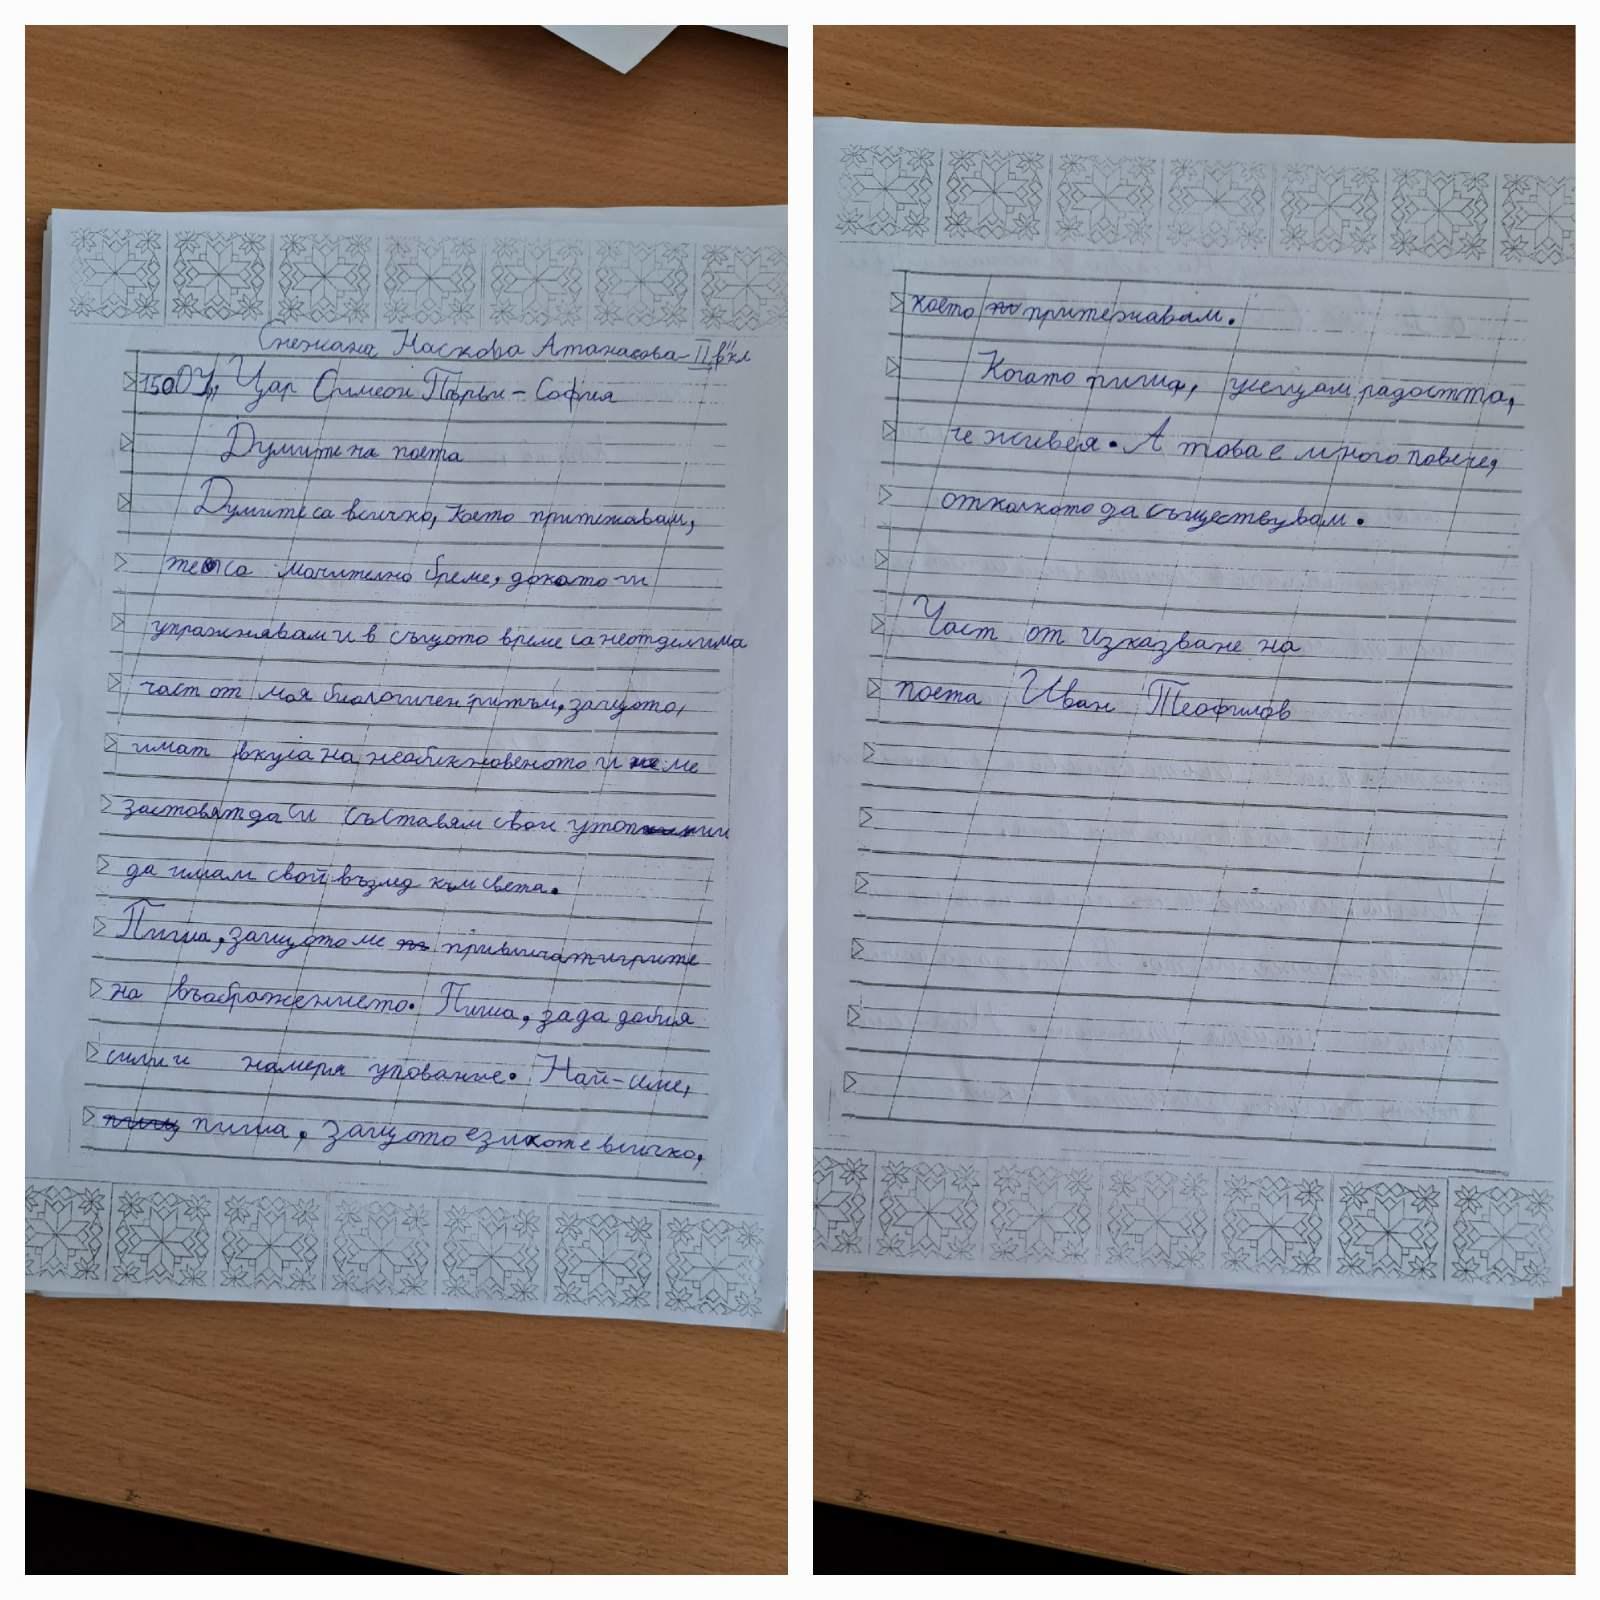 Снежана Наскова Атанасова - II "в" кл
150 ОУ "Цар Симеон Първи - София
Думите на поета
Думите са всичко, което притежавам,
те са мачително бреме, докато ги
упражнявам и в същото време са неотделима
част от моя биологичен ритъм, защото,
имат вкуса на необикновеното и ме
застовят да си съставям свои утопии
да имам свой възглед към света.
Пиша, защото ме привличат игрите
на въображението. Пиша, за да добия
сили и намеря упование. Най-сме,
пиша, защото езикът е всичко,
което притежавам.
Когато пиша, усещам радостта,
че живея. А това е много повече,
отколкото да съществувам.
Част от изказване на
поета Иван Теофилов